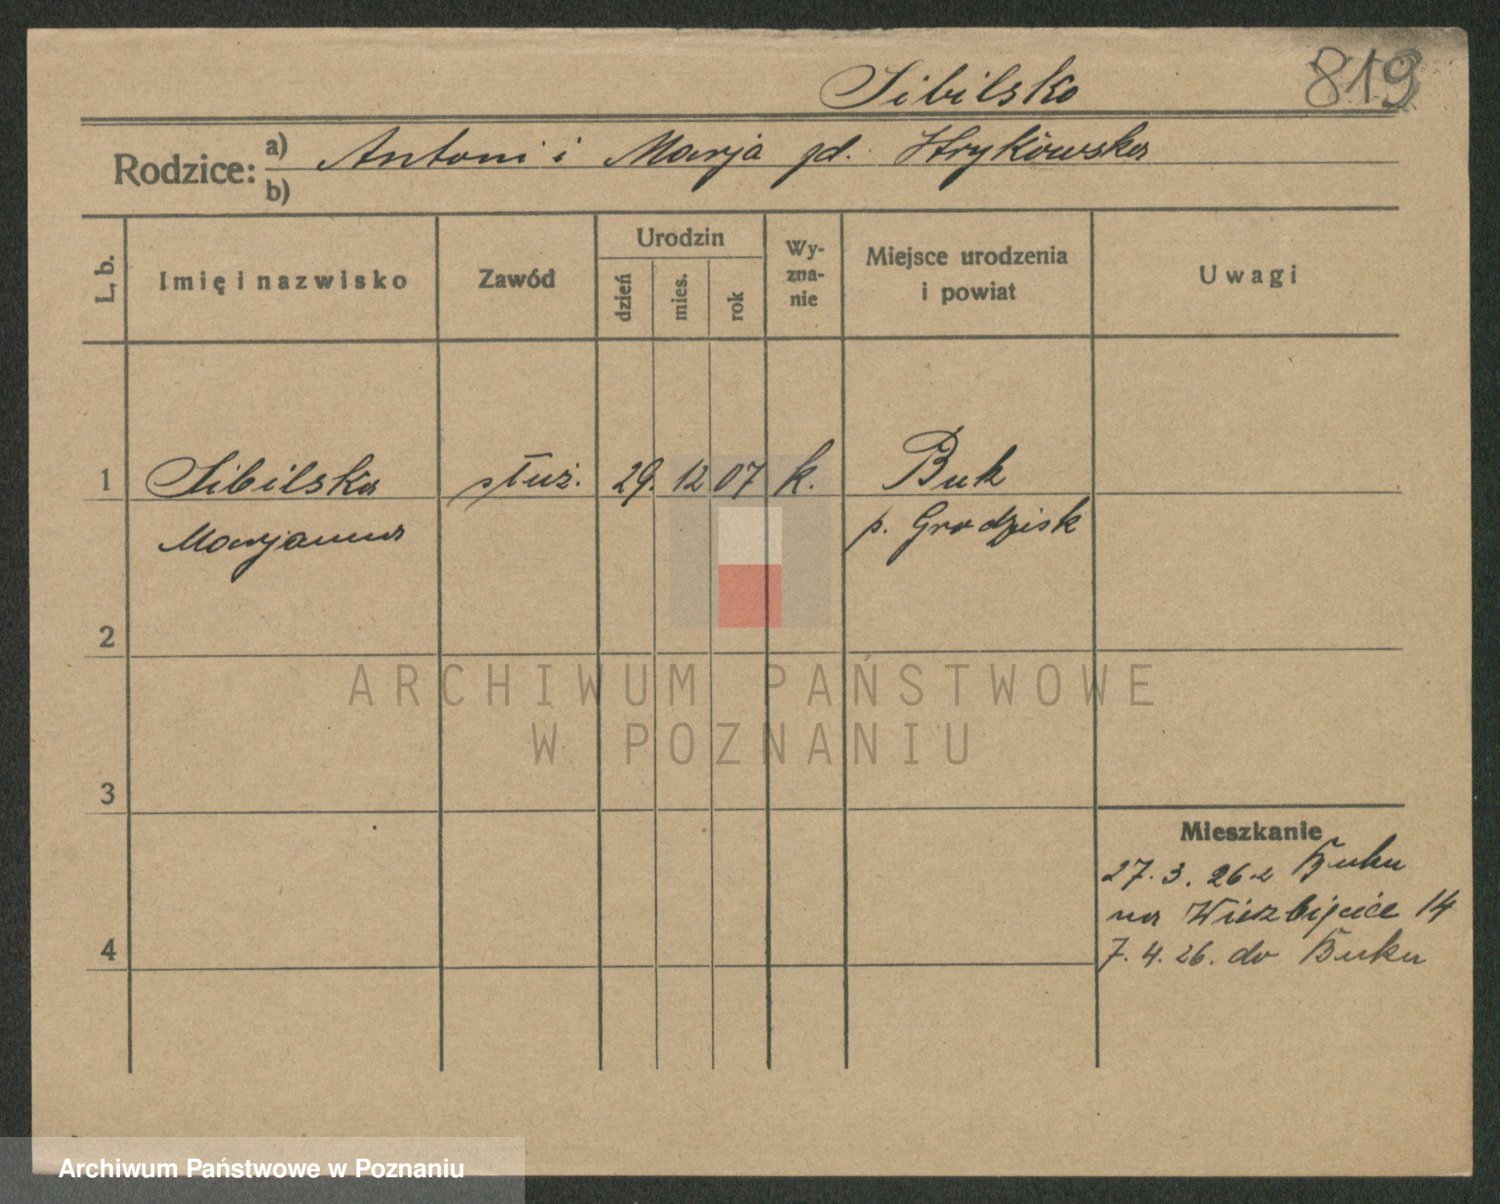 Sibilska
819
Rodzice:
a) Antoni i Marja zd. Strykowska
b)
L. b.
Imię i nazwisko
Zawód
Urodzin
dzień
mies.
rok
Wy-
zna-
nie
Miejsce urodzenia
i powiat
Uwagi
1 Sibilska służ. 29. 12 07 k. Buk
Marjanna p. Grodzisk
2
3
4
Mieszkanie
27. 3. 26 z Buku
na Wierzbięcice 14
7. 4. 26. do Buku
ARCHIWUM PAŃSTWOWE
W POZNANIU
Archiwum Państwowe w Poznaniu